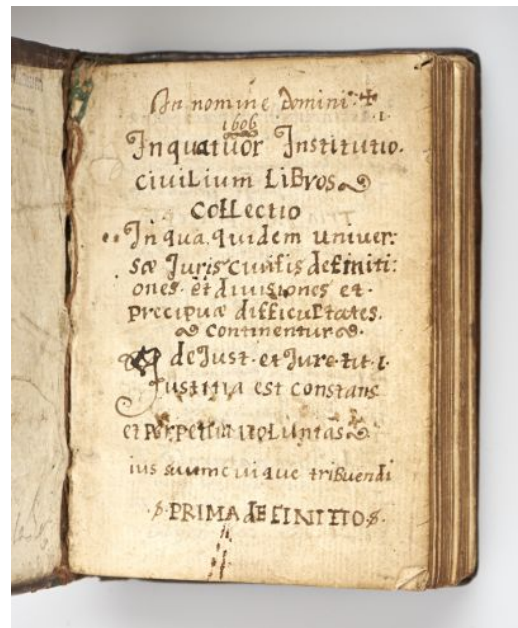 In nomine Domini ✝
1606 .1.
In quatuor Institutio.
civilium Libros
Collectio
In qua quidem univer:
sæ Juris civilis definiti:
ones et divisiones et
præcipuæ difficultates
continentur
de Just. et Jure tit. 1.
Justitia est constans
et Perpetua voluntas
ius suum cuique tribuendi
PRIMA dEFINITIO